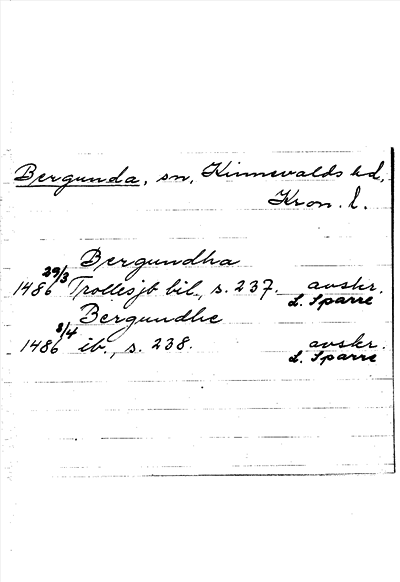 Bergunda, sn, Kinnevalds hd,
Kron. l.
Bergundha
1486 29/3 Trollesjb bil., s. 237. avskr. L. Sparre
Bergundhe
1486 3/4 ib., s. 238. avskr. L. Sparre